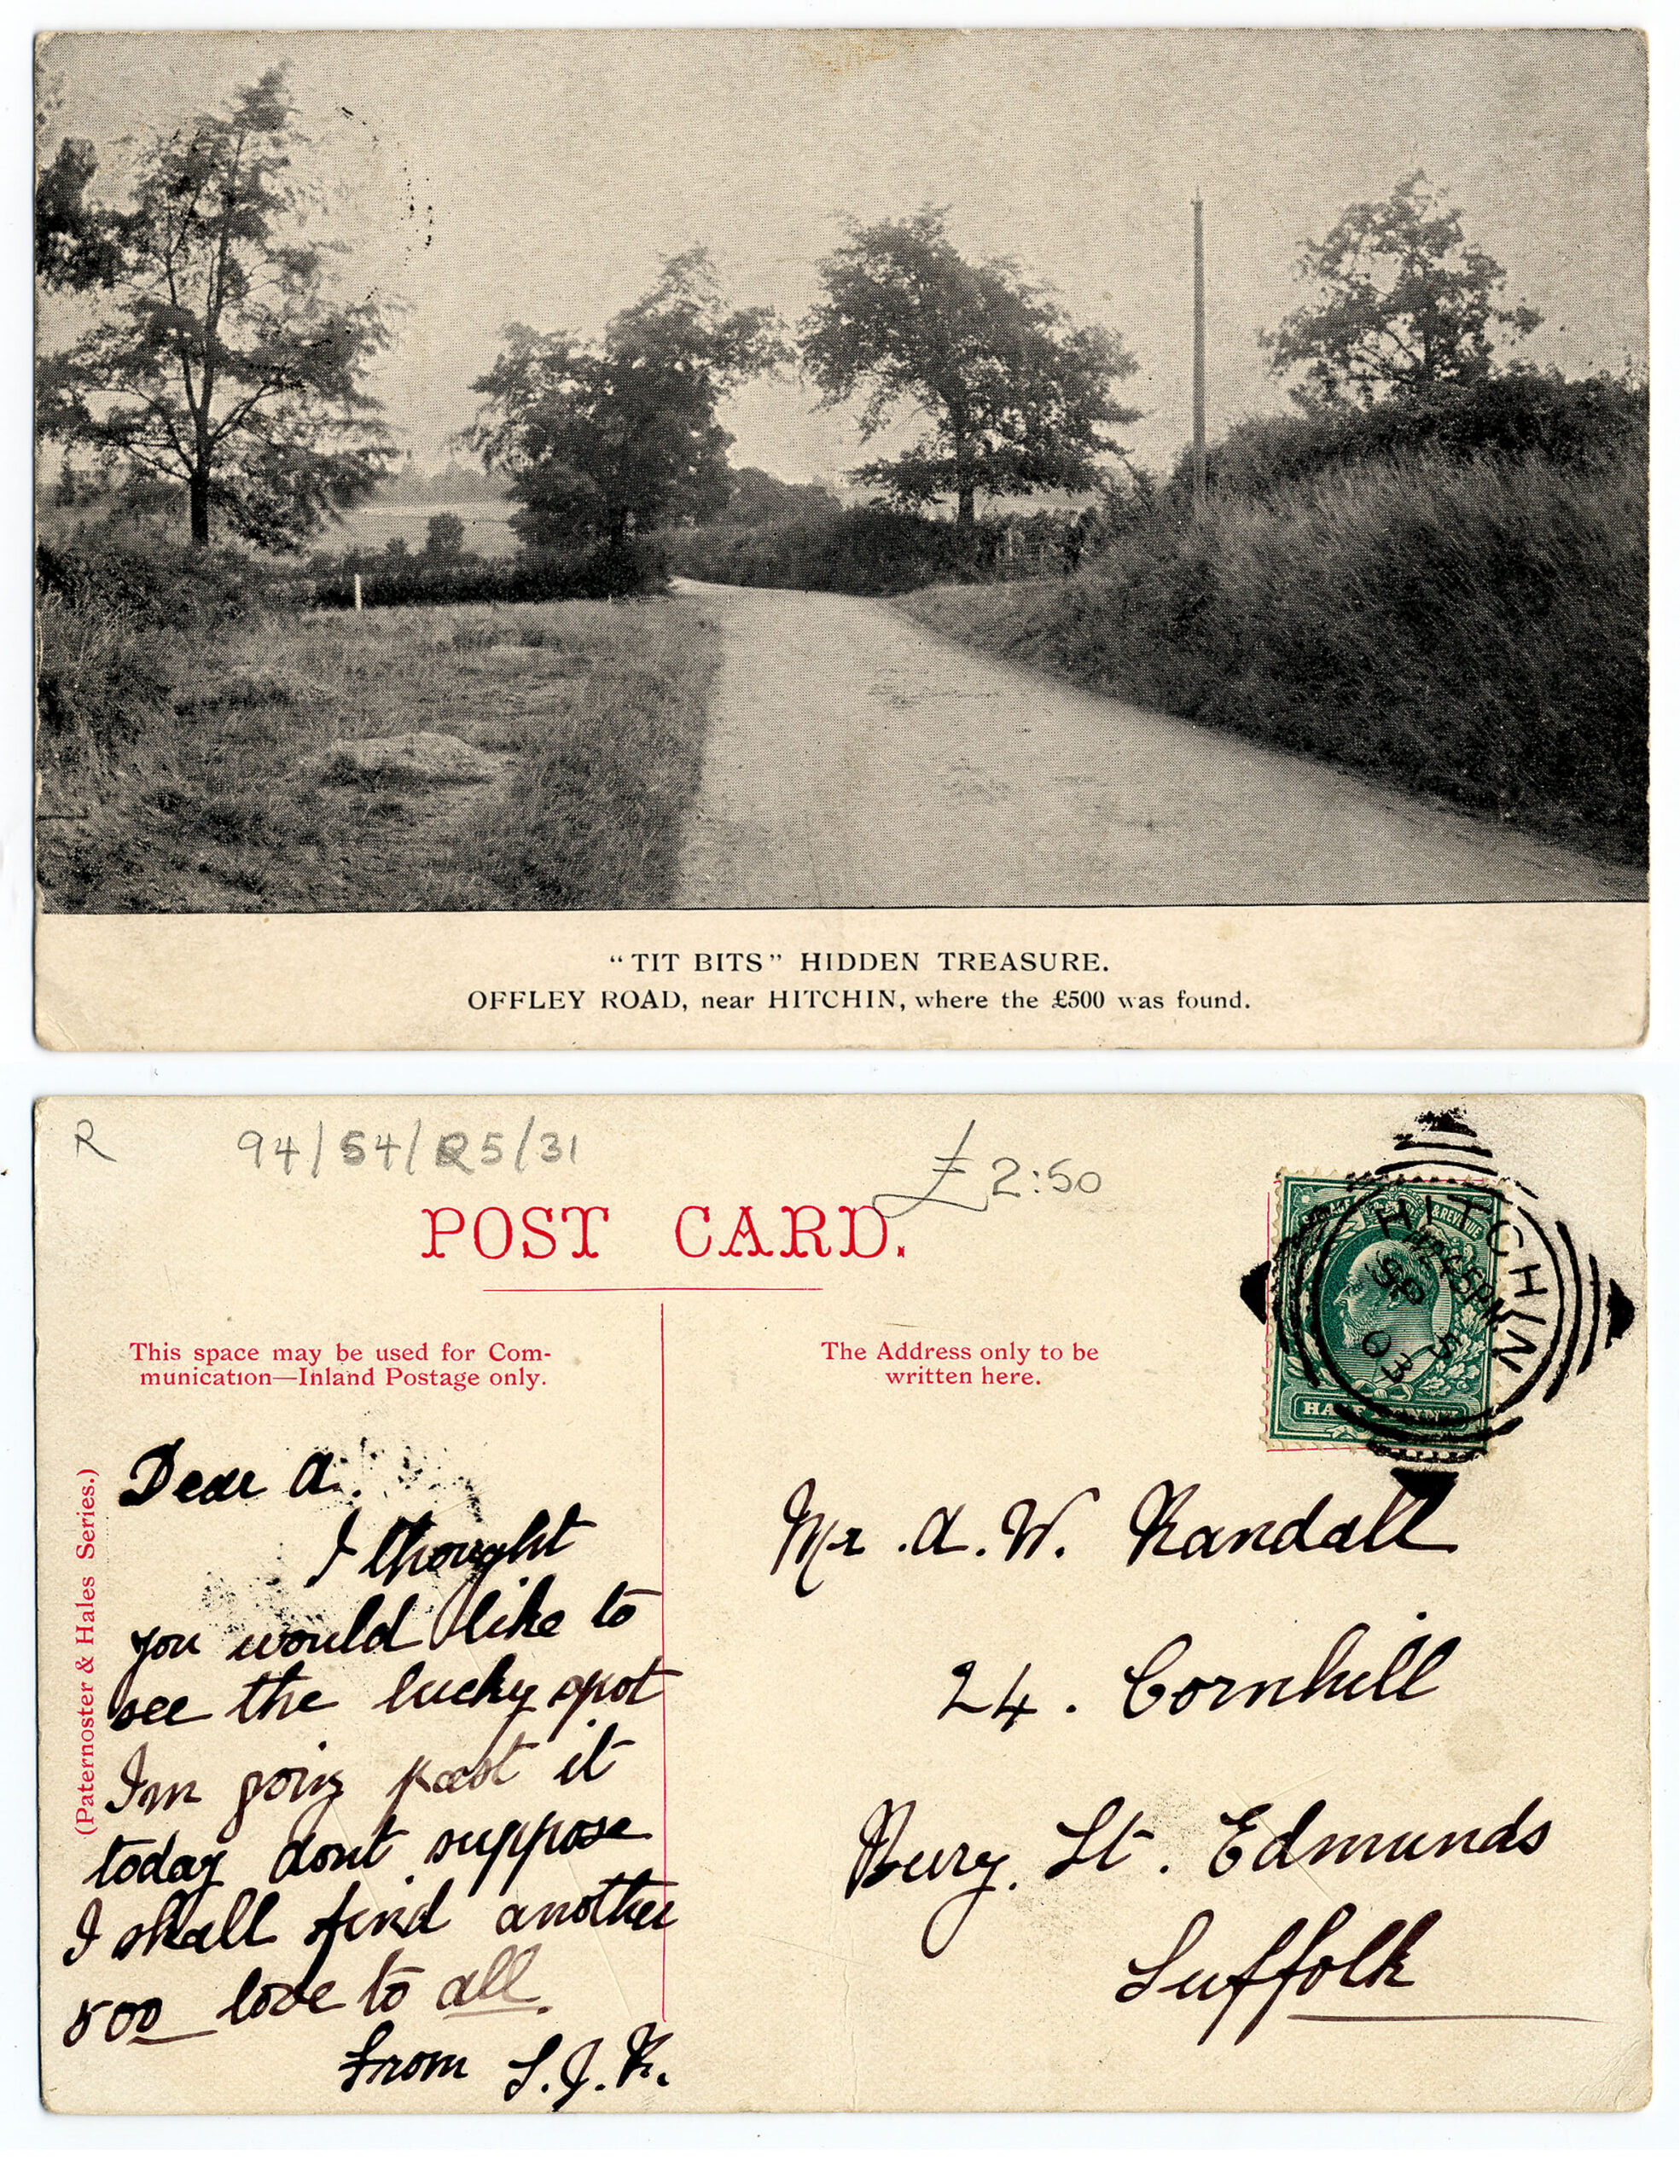 “TIT BITS” HIDDEN TREASURE.
OFFLEY ROAD, near HITCHIN, where the £500 was found.
R
94/54/R5/31
£2:50
POST CARD.
This space may be used for Com-
munication—Inland Postage only.
The Address only to be
written here.
(Paternoster & Hales Series.)
& REVENUE
HALFPENNY
HITCHIN
12 45PM
SP 5
03
Dear A.
I thought
you would like to
see the lucky spot
Im going past it
today dont suppose
I shall find another
500 love to all.
from S.J.R.
Mr. A. W. Randall
24. Cornhill
Bury. St. Edmunds
Suffolk